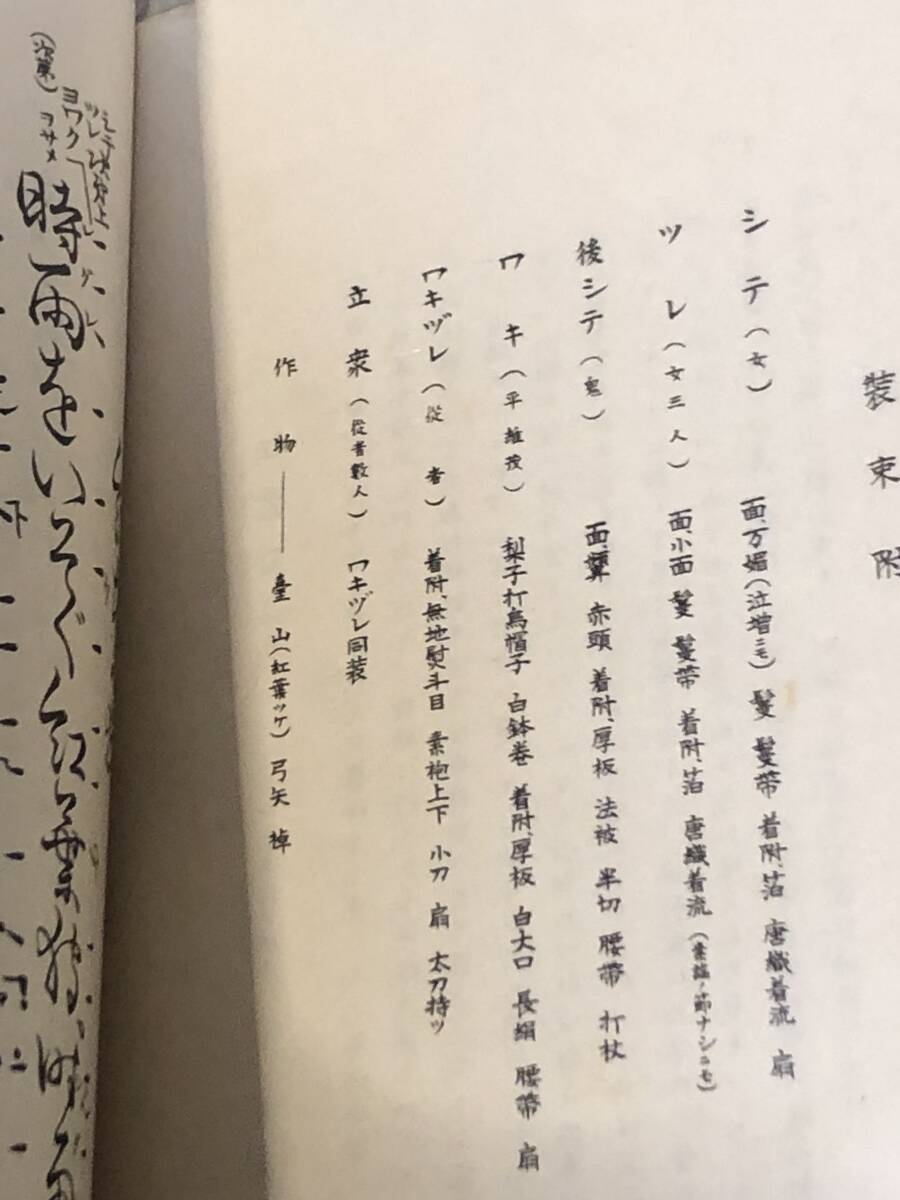 装束附
シテ(女) 面、万媚(泣増ニモ) 鬘 鬘帯 着附、箔 唐織着流 扇
ツレ(女三人) 面、小面 鬘 鬘帯 着附、箔 唐織着流(素謡ノ節ナシニモ)
後シテ(鬼) 面、顰 赤頭 着附、厚板 法被 半切 腰帯 打杖
ワキ(平維茂) 梨子打烏帽子 白鉢巻 着附、厚板 白大口 長絹 腰帯 扇
ワキヅレ(従者) 着附、無地熨斗目 素袍上下 小刀 扇 太刀持ツ
立衆(従者数人) ワキヅレ同装
作物――臺 山(紅葉ツケ) 弓矢 棹
(次第) ヨワク ヲサメ
時雨をいそぐ紅葉狩 時雨